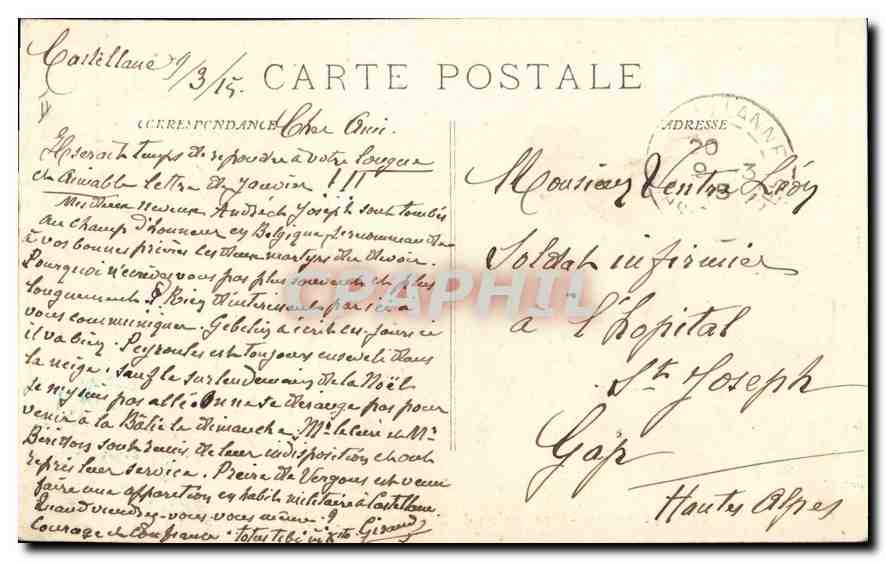 Castellane 9/3/15
CARTE POSTALE
CORRESPONDANCE
ADRESSE
Cher Ami.
Il serait temps de répondre à votre longue
et aimable lettre de Janvier !!!
Mes deux neveux André et Joseph sont tombés
au champ d'honneur en Belgique. Je recommande
à vos bonnes prières ces deux martyrs du devoir.
Pourquoi n'écrivez vous pas plus souvent et plus
longuement ? Rien d'intéressant par ici à
vous communiquer. Gebelin a écrit ces jours ci
il va bien. Peyroules est toujours enseveli dans
la neige. Sauf le surlendemain de la Noël
je n'y suis pas allé. On ne se dérange pas pour
venir à la Bâtie le dimanche. Mr le curé et Mr
sont remis de leur indisposition et ont
repris leur service. de Vergons est venu
faire une apparition en habit militaire à Castellane.
Quand viendrez-vous vous même ?
Courage et confiance. totus tibi in Xto. Giraud
Monsieur Ventre
Soldat infirmier
à l'hopital
St Joseph
Gap
Hautes Alpes
CPAPHIL